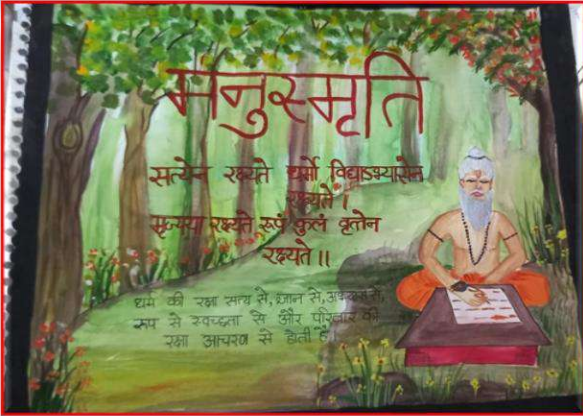 मनुस्मृति
सत्येन रक्ष्यते धर्मो विद्याऽभ्यासेन
रक्ष्यते।
मृज्यया रक्ष्यते रूपं कुलं वृत्तेन
रक्ष्यते॥
धर्म की रक्षा सत्य से, ज्ञान से, अभ्यास से,
रूप से स्वच्छता से और परिवार की
रक्षा आचरण से होती है।